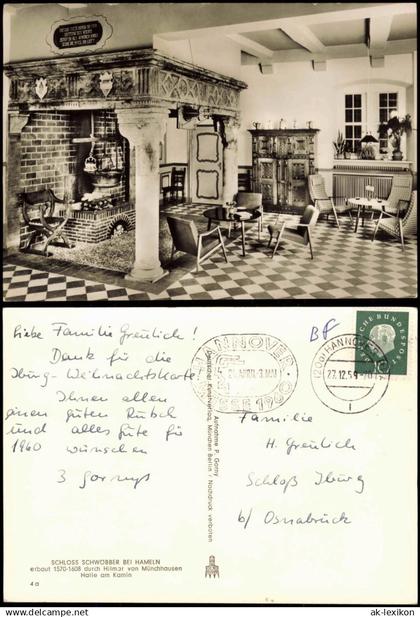 Liebe Familie Greulich!
Dank für die
Iburg-Weihnachtskarte!
Ihnen allen
einen guten Rutsch
und alles Gute für
1960
wünschen
3 Gornys
SCHLOSS SCHWÖBBER BEI HAMELN
erbaut 1570-1608 durch Hilmar von Münchhausen
Halle am Kamin
4a
Aufnahme P. Gorny
Deutscher Kunstverlag, München Berlin / Nachdruck verboten
HANNOVER
MESSE 1960
BF
(20a) HANNOVER
27.12.59
DEUTSCHE BUNDESPOST
Familie
H. Greulich
Schloß Iburg
b/ Osnabrück
ak-lexikon.de